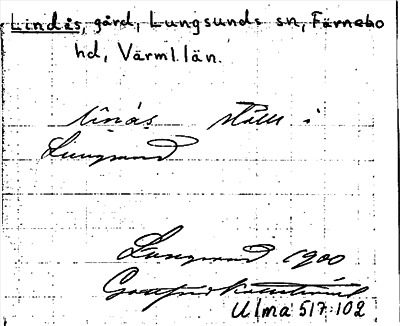 Lindås, gård, Lungsunds sn, Färnebo
hd, Värml. län.
i
Lungsund
Lungsund 1900
Ulma 517:102